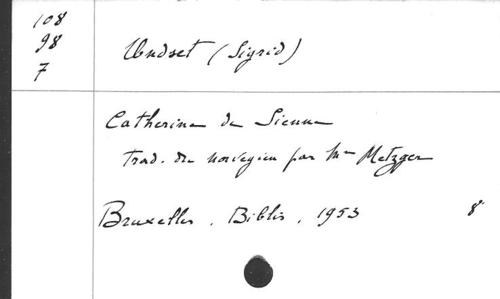 108
98
7
Undset (Sigrid)
Catherine de Sienne
Trad. du norvégien par Mme Metzger
Bruxelles. Biblis. 1953 8°